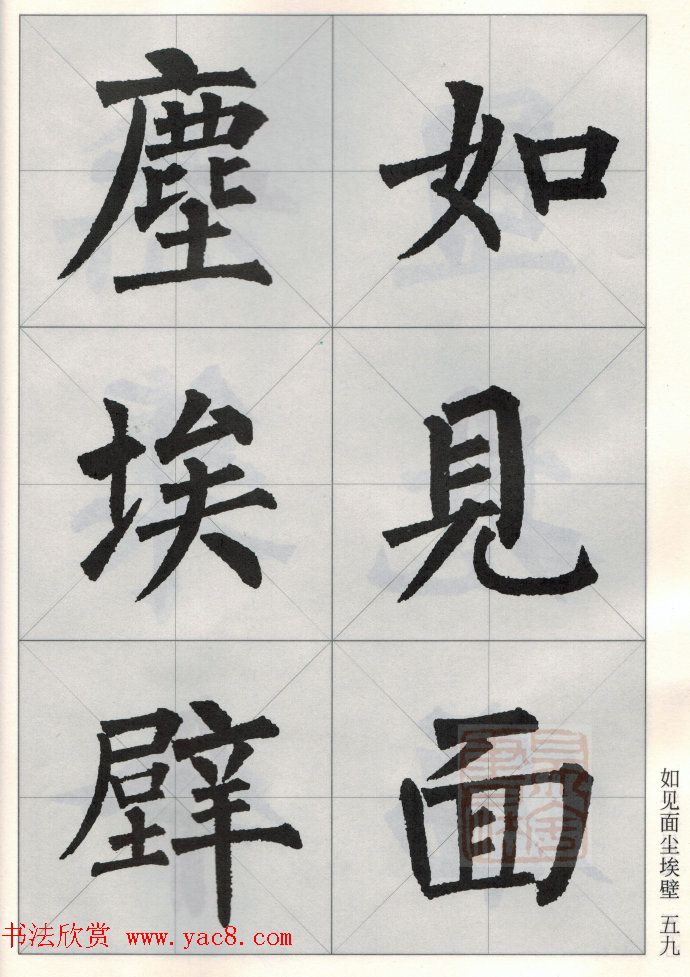 如見面
塵埃壁
如见面尘埃壁 五九
书法欣赏 www.yac8.com